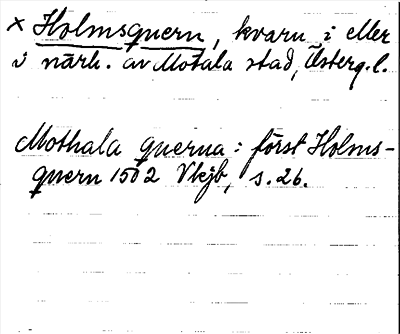 × Holmsquern, kvarn i eller
i närh. av Motala stad, Österg. l.
Mothala querna: först Holms-
quern 1502 Vkjb, s. 26.